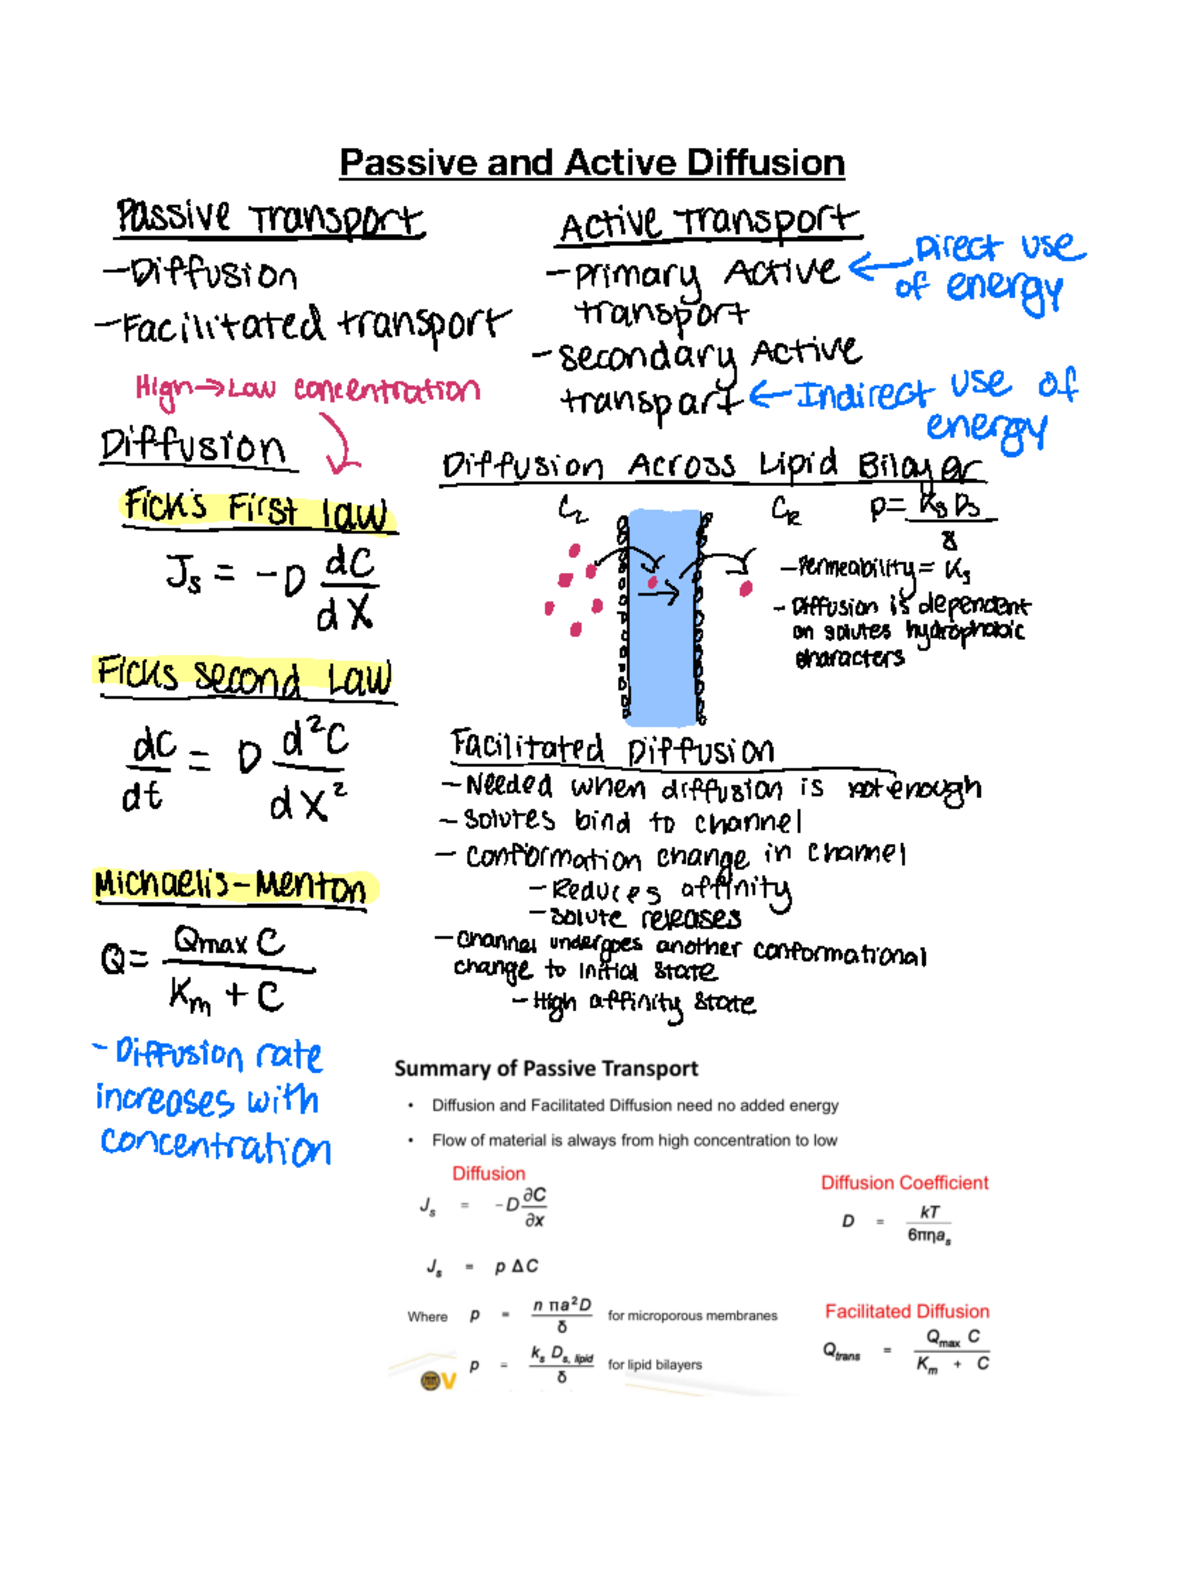 Passive and Active Diffusion
Passive Transport
-Diffusion
-Facilitated transport
High→Low concentration
Active Transport
-Primary Active ← Direct use
transport of energy
-Secondary Active
transport ← Indirect use of
energy
Diffusion
Ficks First law
Js = -D dC/dX
Ficks Second Law
dC/dt = D d²C/dX²
Michaelis-Menton
Q = Qmax C / Km + C
- Diffusion rate
increases with
concentration
Diffusion Across Lipid Bilayer
CL CR p = Ks Ds / δ
-Permeability = Ks
- Diffusion is dependent
on solutes hydrophobic
characters
Facilitated Diffusion
-Needed when diffusion is not enough
- Solutes bind to channel
- Conformation change in channel
-Reduces affinity
-Solute releases
-Channel undergoes another conformational
change to initial state
-High affinity state
Summary of Passive Transport
• Diffusion and Facilitated Diffusion need no added energy
• Flow of material is always from high concentration to low
Diffusion
Js = -D ∂C/∂x
Js = p ΔC
Where p = n πa²D / δ for microporous membranes
p = ks Ds, lipid / δ for lipid bilayers
Diffusion Coefficient
D = kT / 6πηas
Facilitated Diffusion
Qtrans = Qmax C / Km + C